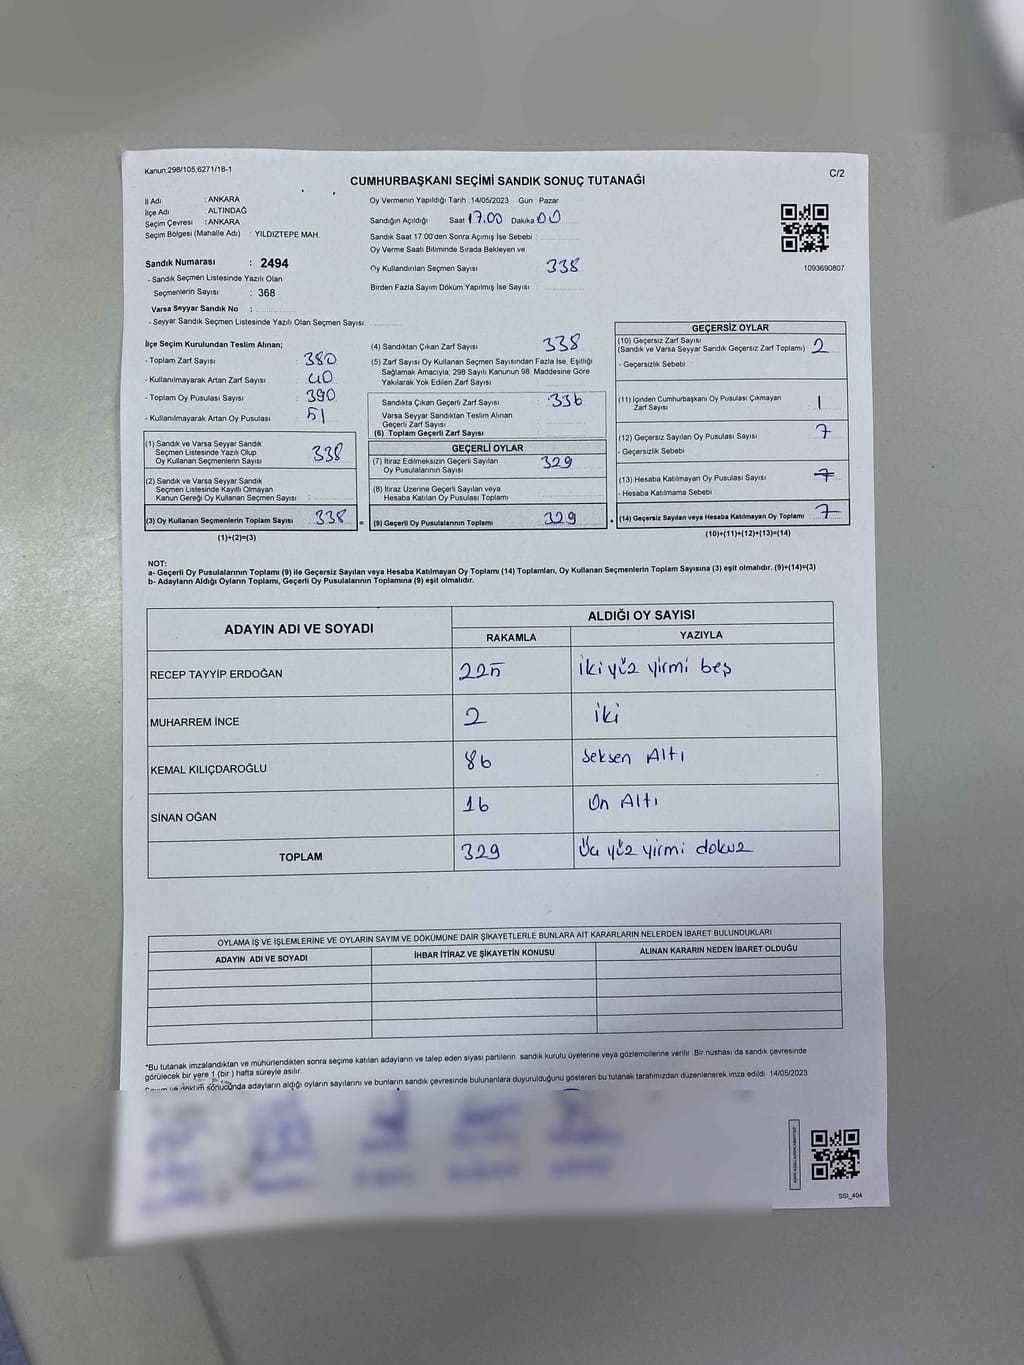 Kanun:298/105;6271/18-1
C/2
CUMHURBAŞKANI SEÇİMİ SANDIK SONUÇ TUTANAĞI
İl Adı : ANKARA
İlçe Adı : ALTINDAĞ
Seçim Çevresi : ANKARA
Seçim Bölgesi (Mahalle Adı) : YILDIZTEPE MAH.
Sandık Numarası : 2494
- Sandık Seçmen Listesinde Yazılı Olan
Seçmenlerin Sayısı : 368
Varsa Seyyar Sandık No :
- Seyyar Sandık Seçmen Listesinde Yazılı Olan Seçmen Sayısı:
Oy Vermenin Yapıldığı Tarih : 14/05/2023 Gün : Pazar
Sandığın Açıldığı Saat 17.00 Dakika 00
Sandık Saat 17:00'den Sonra Açımış İse Sebebi :
Oy Verme Saati Bitiminde Sırada Bekleyen ve
Oy Kullandırılan Seçmen Sayısı 338
Birden Fazla Sayım Döküm Yapılmış İse Sayısı :
1093690807
İlçe Seçim Kurulundan Teslim Alınan;
- Toplam Zarf Sayısı : 380
- Kullanılmayarak Artan Zarf Sayısı : 40
- Toplam Oy Pusulası Sayısı : 390
- Kullanılmayarak Artan Oy Pusulası : 51
(1) Sandık ve Varsa Seyyar Sandık
Seçmen Listesinde Yazılı Olup
Oy Kullanan Seçmenlerin Sayısı 338
(2) Sandık ve Varsa Seyyar Sandık
Seçmen Listesinde Kayıtlı Olmayan
Kanun Gereği Oy Kullanan Seçmen Sayısı
(3) Oy Kullanan Seçmenlerin Toplam Sayısı 338 =
(1)+(2)=(3)
(4) Sandıktan Çıkan Zarf Sayısı 338
(5) Zarf Sayısı Oy Kullanan Seçmen Sayısından Fazla İse, Eşitliği
Sağlamak Amacıyla, 298 Sayılı Kanunun 98. Maddesine Göre
Yakılarak Yok Edilen Zarf Sayısı
Sandıkta Çıkan Geçerli Zarf Sayısı 336
Varsa Seyyar Sandıktan Teslim Alınan
Geçerli Zarf Sayısı
(6) Toplam Geçerli Zarf Sayısı
GEÇERLİ OYLAR
(7) İtiraz Edilmeksizin Geçerli Sayılan
Oy Pusulalarının Sayısı 329
(8) İtiraz Üzerine Geçerli Sayılan veya
Hesaba Katılan Oy Pusulası Toplamı
(9) Geçerli Oy Pusulalarının Toplamı 329 +
GEÇERSİZ OYLAR
(10) Geçersiz Zarf Sayısı
(Sandık ve Varsa Seyyar Sandık Geçersiz Zarf Toplamı) 2
- Geçersizlik Sebebi
(11) İçinden Cumhurbaşkanı Oy Pusulası Çıkmayan
Zarf Sayısı 1
(12) Geçersiz Sayılan Oy Pusulası Sayısı 7
- Geçersizlik Sebebi
(13) Hesaba Katılmayan Oy Pusulası Sayısı 7
- Hesaba Katılmama Sebebi
(14) Geçersiz Sayılan veya Hesaba Katılmayan Oy Toplamı 7
(10)+(11)+(12)+(13)=(14)
NOT:
a- Geçerli Oy Pusulalarının Toplamı (9) ile Geçersiz Sayılan veya Hesaba Katılmayan Oy Toplamı (14) Toplamları, Oy Kullanan Seçmenlerin Toplam Sayısına (3) eşit olmalıdır. (9)+(14)=(3)
b- Adayların Aldığı Oyların Toplamı, Geçerli Oy Pusulalarının Toplamına (9) eşit olmalıdır.
ADAYIN ADI VE SOYADI ALDIĞI OY SAYISI
RAKAMLA YAZIYLA
RECEP TAYYİP ERDOĞAN 225 iki yüz yirmi beş
MUHARREM İNCE 2 iki
KEMAL KILIÇDAROĞLU 86 Seksen Altı
SİNAN OĞAN 16 On Altı
TOPLAM 329 Üç yüz yirmi dokuz
OYLAMA İŞ VE İŞLEMLERİNE VE OYLARIN SAYIM VE DÖKÜMÜNE DAİR ŞİKAYETLERLE BUNLARA AİT KARARLARIN NELERDEN İBARET BULUNDUKLARI
ADAYIN ADI VE SOYADI İHBAR İTİRAZ VE ŞİKAYETİN KONUSU ALINAN KARARIN NEDEN İBARET OLDUĞU
*Bu tutanak imzalandıktan ve mühürlendikten sonra seçime katılan adayların ve talep eden siyasi partilerin sandık kurulu üyelerine veya gözlemcilerine verilir. Bir nüshası da sandık çevresinde
görülecek bir yere 1 (bir) hafta süreyle asılır.
sonucunda adayların aldığı oyların sayılarını ve bunların sandık çevresinde bulunanlara duyurulduğunu gösteren bu tutanak tarafımızdan düzenlenerek imza edildi. 14/05/2023
SSI_404